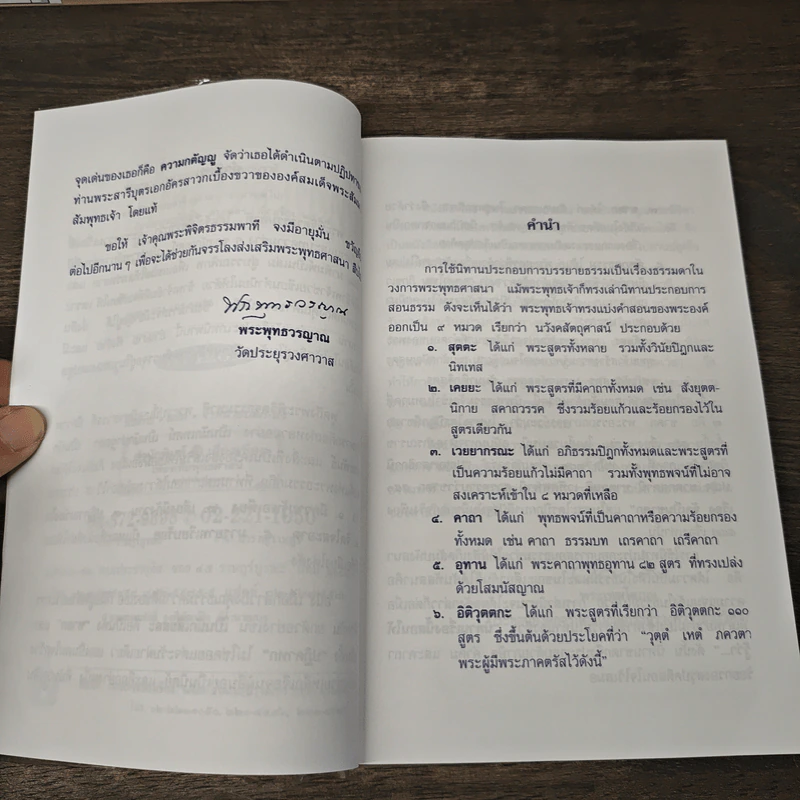 จุดเด่นของเธอก็คือ ความกตัญญู จัดว่าเธอได้ดำเนินตามปฏิปทา
ท่านพระสารีบุตรเอกอัครสาวกเบื้องขวาขององค์สมเด็จพระสัมมา
สัมพุทธเจ้า โดยแท้
ขอให้ เจ้าคุณพระพิจิตรธรรมพาที จงมีอายุมั่น
ต่อไปอีกนาน ๆ เพื่อจะได้ช่วยกันจรรโลงส่งเสริมพระพุทธศาสนา
พระพุทธวรญาณ
วัดประยุรวงศาวาส
คำนำ
การใช้นิทานประกอบการบรรยายธรรมเป็นเรื่องธรรมดาใน
วงการพระพุทธศาสนา แม้พระพุทธเจ้าก็ทรงเล่านิทานประกอบการ
สอนธรรม ดังจะเห็นได้ว่า พระพุทธเจ้าทรงแบ่งคำสอนของพระองค์
ออกเป็น ๙ หมวด เรียกว่า นวังคสัตถุศาสน์ ประกอบด้วย
๑. สุตตะ ได้แก่ พระสูตรทั้งหลาย รวมทั้งวินัยปิฎกและ
นิทเทส
๒. เคยยะ ได้แก่ พระสูตรที่มีคาถาทั้งหมด เช่น สังยุตต-
นิกาย สคาถวรรค ซึ่งรวมร้อยแก้วและร้อยกรองไว้ใน
สูตรเดียวกัน
๓. เวยยากรณะ ได้แก่ อภิธรรมปิฎกทั้งหมดและพระสูตรที่
เป็นความร้อยแก้วไม่มีคาถา รวมทั้งพุทธพจน์ที่ไม่อาจ
สงเคราะห์เข้าใน ๘ หมวดที่เหลือ
๔. คาถา ได้แก่ พุทธพจน์ที่เป็นคาถาหรือความร้อยกรอง
ทั้งหมด เช่น คาถา ธรรมบท เถรคาถา เถรีคาถา
๕. อุทาน ได้แก่ พระคาถาพุทธอุทาน ๘๒ สูตร ที่ทรงเปล่ง
ด้วยโสมนัสญาณ
๖. อิติวุตตกะ ได้แก่ พระสูตรที่เรียกว่า อิติวุตตกะ ๑๑๐
สูตร ซึ่งขึ้นต้นด้วยประโยคที่ว่า "วุตฺตํ เหตํ ภควตา
พระผู้มีพระภาคตรัสไว้ดังนี้"